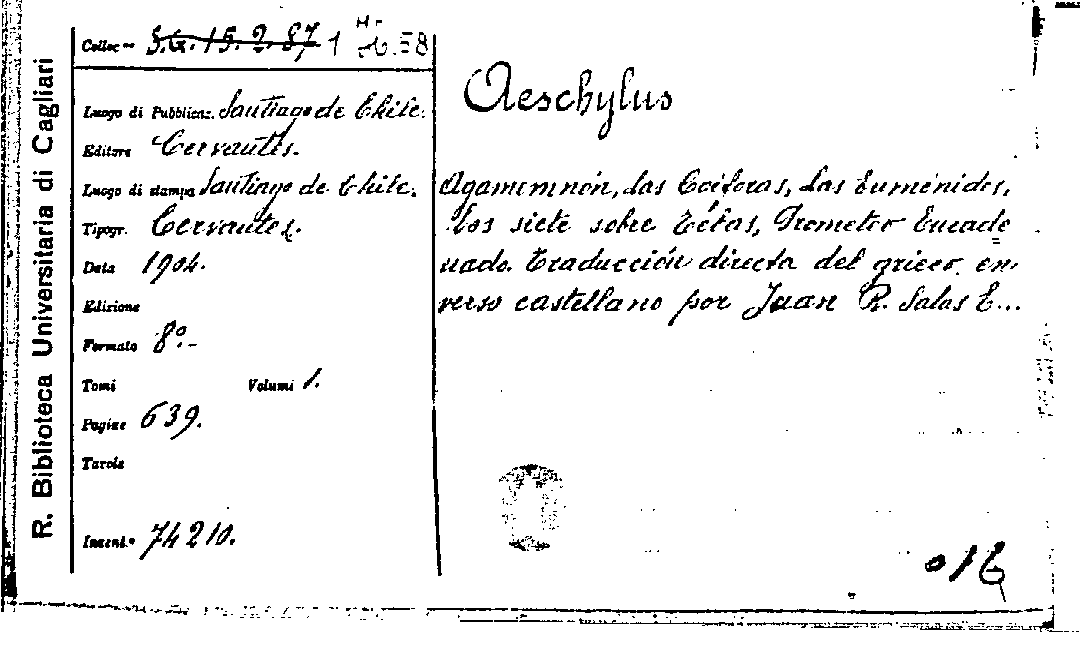 R. Biblioteca Universitaria di Cagliari
Colloc.ne S.G. 15. 2. 87 1 H. 58
Luogo di Pubblicaz. Santiago de Chile.
Editore Cervantes.
Luogo di stampa Santiago de Chile.
Tipogr. Cervantes.
Data 1904.
Edizione
Formato 8º.-
Tomi Volumi 1.
Pagine 639.
Tavole
Invent.º 74210.
Aeschylus
Agamemnón, las Coéforas, las Euménides,
los siete sobre Tébas, Prometeo Encade
nado. Traducción directa del griego en
verso castellano por Juan R. Salas E...
016